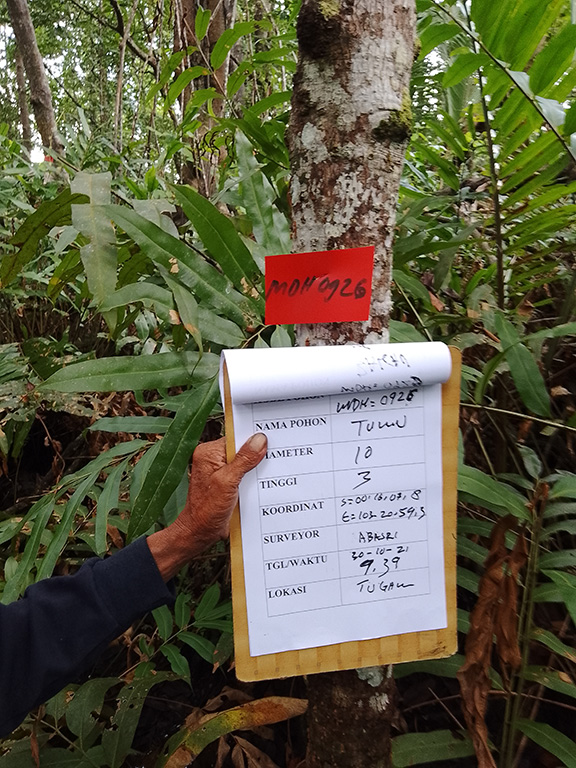 MDH 0926
MDH = 0926
NAMA POHON TUMU
IAMETER 10
TINGGI 3
KOORDINAT S=00.18.07.8
E=103.20.59.3
SURVEYOR ABASRI
TGL/WAKTU 30-10-21
9.39
LOKASI TUGAU